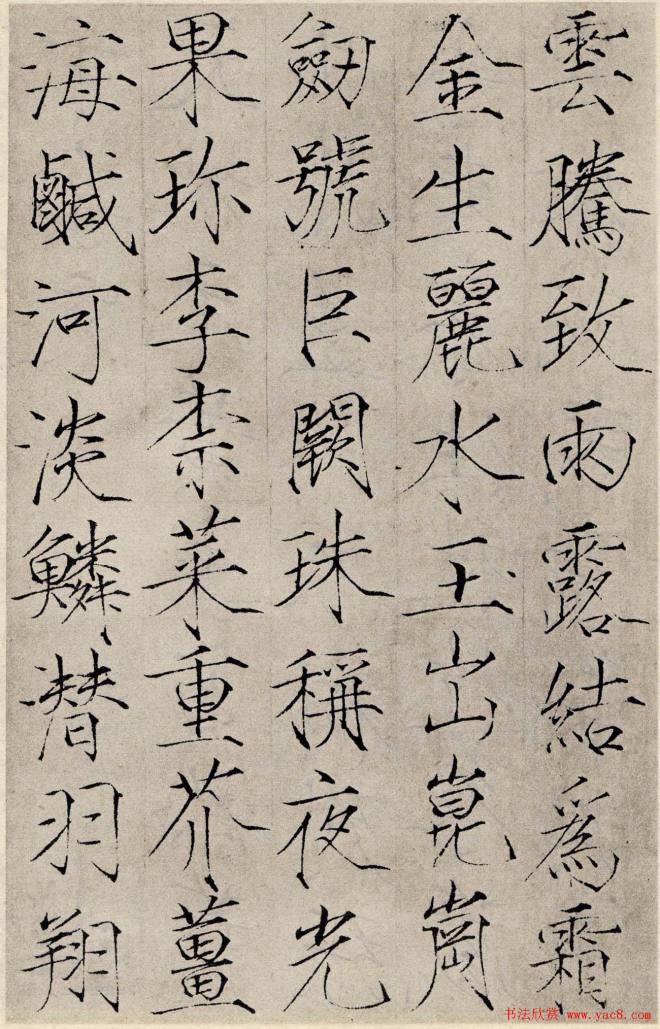 雲騰致雨露結爲霜
金生麗水玉出崑崗
劒號巨闕珠稱夜光
果珎李柰菜重芥薑
海鹹河淡鱗潜羽翔
书法欣赏 www.yac8.com